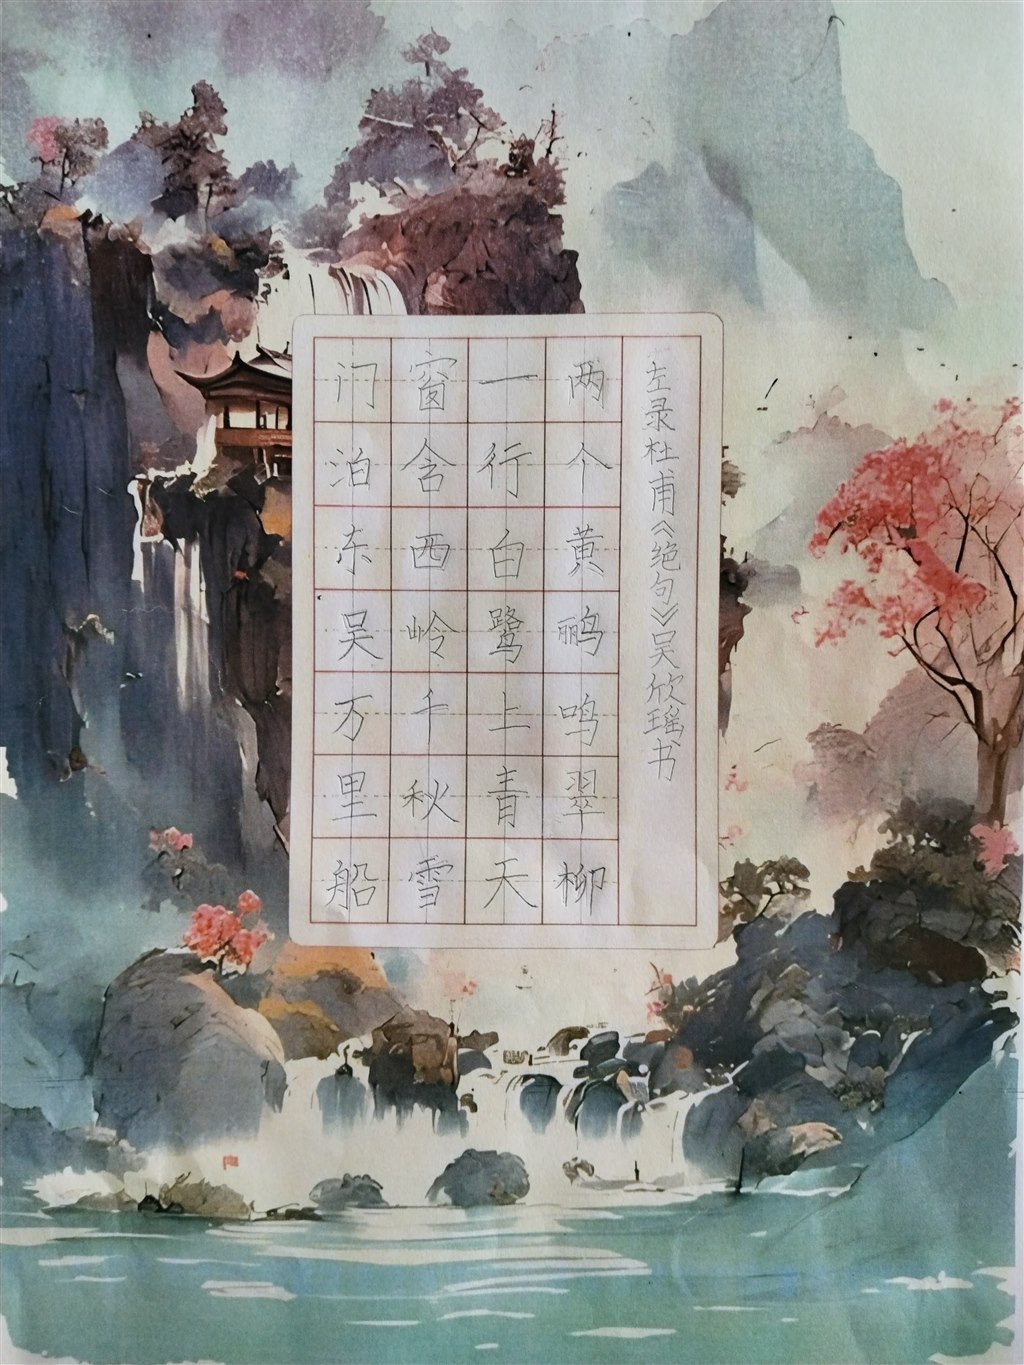 左录杜甫《绝句》吴欣瑶书
两个黄鹂鸣翠柳
一行白鹭上青天
窗含西岭千秋雪
门泊东吴万里船